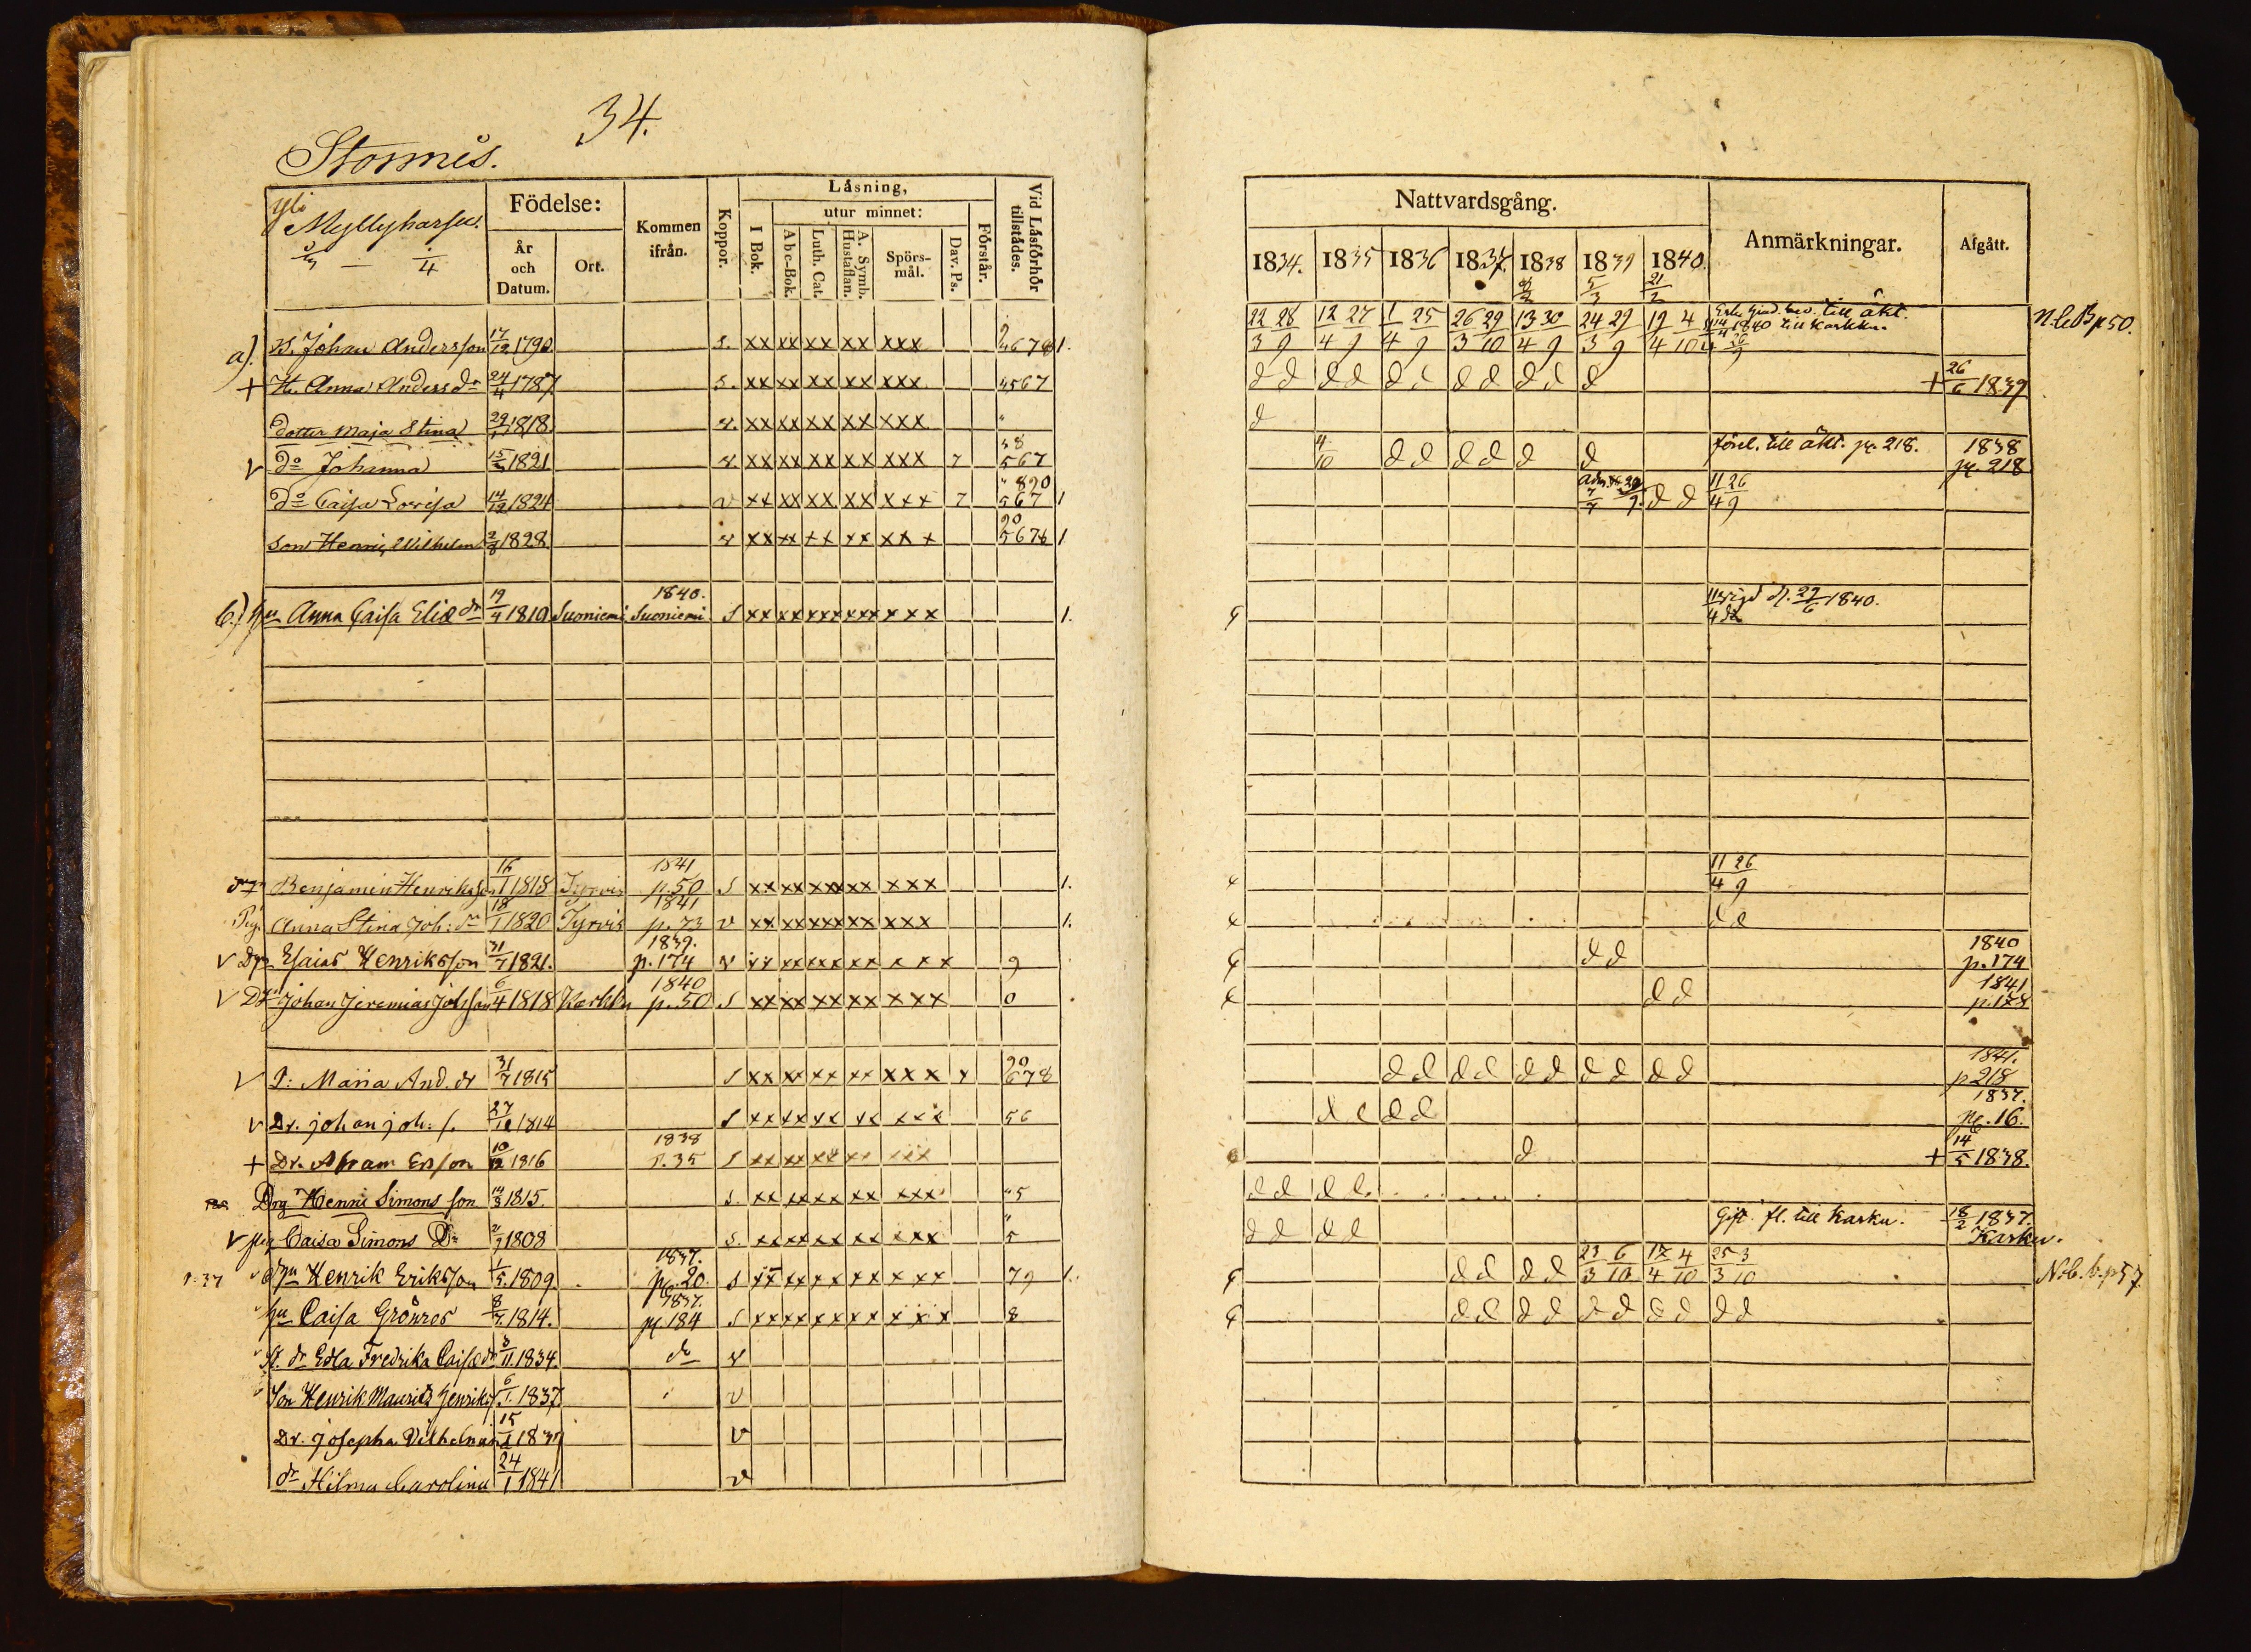 34.
Stormis.
Yli Myllyharju.
Födelse:
År och Datum.
Ort.
Kommen ifrån.
Koppor.
Låsning,
I Bok.
utur minnet:
Abc-Bok.
Luth. Cat.
A. Symb. Hustaflan.
Spörsmål.
Dav. Ps.
Förstår.
Vid Låsförhör tillstådes.
a). Johan Andersson 17/12 1790. s. xx xx xx xx xxx 1.
+ H. Anna Anders dr 24/4 1787. s. xx xx xx xx xxx 4567
dotter Maja Stina 29/1 1818. v. xx xx xx xx xxx "
v do Johanna 15/3 1821 v. xx xx xx xx xxx 7 567
do Caisa Lovisa 14/12 1824 v xx xx xx xx xxx 7 567 1
son Henric Wilhelm 2/8 1828 v xx xx xx xx xxx 5678 1
1840.
b.) hu Anna Caisa Eliæ dr 19/4 1810 Suoniemi Suoniemi s xx xx xxx xxx xxx 1.
1841
Benjamin Henriksson 16/1 1818 Tyrvis p. 50 s xx xx xxxx xxx 1.
1841
Pig. Anna Stina Joh: dr 18/1 1820 Tyrvis p. 73 v xx xx xxxx xxx 1.
1839.
v Esaias Henriksson 31/7 1821. p. 174 v xx xx xx xx xxx 9
1840
v Johan Jeremias Johsson 6/4 1818 Karkku p. 50 s xx xx xx xx xxx 0
v P: Maria And. dr 31/7 1815 s xx xx xx xx xxx x 678
v Dr. johan joh: s. 27/10 1814 s xx xx xx xx xxx 56
1838
+ Dr. Abram Ersson 10/12 1816 P. 35 s xx xx xx xx xxx
Drg Henric Simons son 14/3 1815. s. xx xx xx xx xxx "5
v pig Caisa Simons Dr 1808 s. xx xx xx xx xxx 5
1837.
p. 37 v Henrik Eriksson 1/5 1809. pg. 20 s xx xx xx xx xxx 79 1.
1837.
hu Caisa Grönros 8/7 1814. pg. 184 s xx xx xx xx xxx 8
dr Edla Fredrika Caisædr 3/11 1834. do v
Son Henrik Maurits Henrikss 6/1 1837. v
Dr. josepha Vilhelmina 15/1 1837 v
dr Hilma Carolina 24/1 1841 v
Nattvardsgång.
Anmärkningar.
Afgått.
1834. 1835 1836 1837. 1838 1839 1840.
5/3 21/2
22/3 28/9 12/4 27/9 1/4 25/9 26/3 29/10 13/4 30/9 24/3 29/9 19/4 4/10 till äkt. 1840 till Karkku. N.C.B p 50.
d d d d d d d d d d d + 26/6 1839
d
4/10 d d d d d d förel. till äkt. pg. 218. 1838 pg. 218
d d 11/4 26/9
vigd d. 29/6 1840.
11/4 26/9
d d
d d 1840 p. 174
d d 1841 p. 178
d d d d d d d d d d 1841. p 218
d d d d 1837. pg. 16.
d + 14/5 1838.
d d d d
d d d d Gift. fl. till Karku. 18/2 1837. Karku.
d d d d 23/3 6/10 17/4 4/10 25/3 3/10 N.b.b. p 57.
d d d d d d d d d d